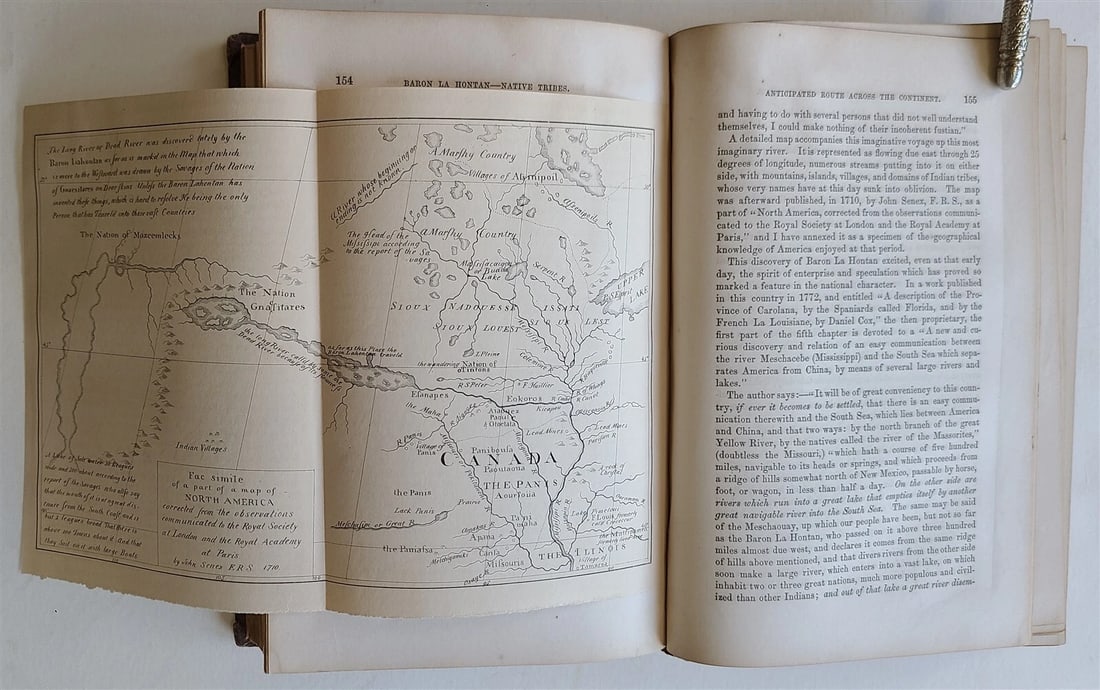 154
BARON LA HONTAN—NATIVE TRIBES.
The Long River or Dead River was discovered lately by the
Baron Lahontan as far as is marked in the Map that which
is more to the Westward was drawn by the Savages of the Nation
of Gnacsitares on Deer skins Unless the Baron Lahontan has
invented these things, which is hard to resolve He being the only
Person that has Traveld into these vast Countries
The Nation of Mozeemlecks
The Nation
Gnasitares
Indian Villages
A River whose beginning or
ending is not known
A Marshy Country
Villages of Assinipoil
The Head of the
Missisipi according
to the report of the Sa
vages
A Marshy Country
Serpent R.
UPPER
LAKE
SIOUX NADOUESSI
SIOUX OUEST
EST
as far as this Place the
Baron Lahontan traveld
the wandering Nation of
R S Peter
Esanapes
Eokoros
the Maha
Kicapou
Lead Mines
Lead Mines
R. Panis
Village of
Panis
Panibousa
Paoutaoua
CANADA
THE PANIS
Aourtoua
the Panis
Lack Panis
Prairie
Apana
Cansa
Missouris
Osage R.
THE ILLINOIS
Village of
Tamaroa
Fac simile
of a part of a map of
NORTH AMERICA
corrected from the observations
communicated to the Royal Society
at London and the Royal Academy
at Paris
by John Senex F.R.S. 1710.
report of the Savages who also say
that the mouth of it is
but 2 leagues broad That there is
above 100 Towns about it And that
they Sail on it with large Boats
ANTICIPATED ROUTE ACROSS THE CONTINENT. 155
and having to do with several persons that did not well understand
themselves, I could make nothing of their incoherent fustian."
A detailed map accompanies this imaginative voyage up this most
imaginary river. It is represented as flowing due east through 25
degrees of longitude, numerous streams putting into it on either
side, with mountains, islands, villages, and domains of Indian tribes,
whose very names have at this day sunk into oblivion. The map
was afterward published, in 1710, by John Senex, F. R. S., as a
part of "North America, corrected from the observations communi-
cated to the Royal Society at London and the Royal Academy at
Paris," and I have annexed it as a specimen of the geographical
knowledge of America enjoyed at that period.
This discovery of Baron La Hontan excited, even at that early
day, the spirit of enterprise and speculation which has proved so
marked a feature in the national character. In a work published
in this country in 1772, and entitled "A description of the Pro-
vince of Carolana, by the Spaniards called Florida, and by the
French La Louisiane, by Daniel Cox," the then proprietary, the
first part of the fifth chapter is devoted to a "A new and cu-
rious discovery and relation of an easy communication between
the river Meschacebe (Mississippi) and the South Sea which sepa-
rates America from China, by means of several large rivers and
lakes."
The author says:—"It will be of great conveniency to this coun-
try, if ever it becomes to be settled, that there is an easy commu-
nication therewith and the South Sea, which lies between America
and China, and that two ways: by the north branch of the great
Yellow River, by the natives called the river of the Massorites,"
(doubtless the Missouri,) "which hath a course of five hundred
miles, navigable to its heads or springs, and which proceeds from
a ridge of hills somewhat north of New Mexico, passable by horse,
foot, or wagon, in less than half a day. On the other side are
rivers which run into a great lake that empties itself by another
great navigable river into the South Sea. The same may be said
of the Meschaouay, up which our people have been, but not so far
as the Baron La Hontan, who passed on it above three hundred
miles almost due west, and declares it comes from the same ridge
of hills above mentioned, and that divers rivers from the other side
soon make a large river, which enters into a vast lake, on which
inhabit two or three great nations, much more populous and civil-
ized than other Indians; and out of that lake a great river disem-